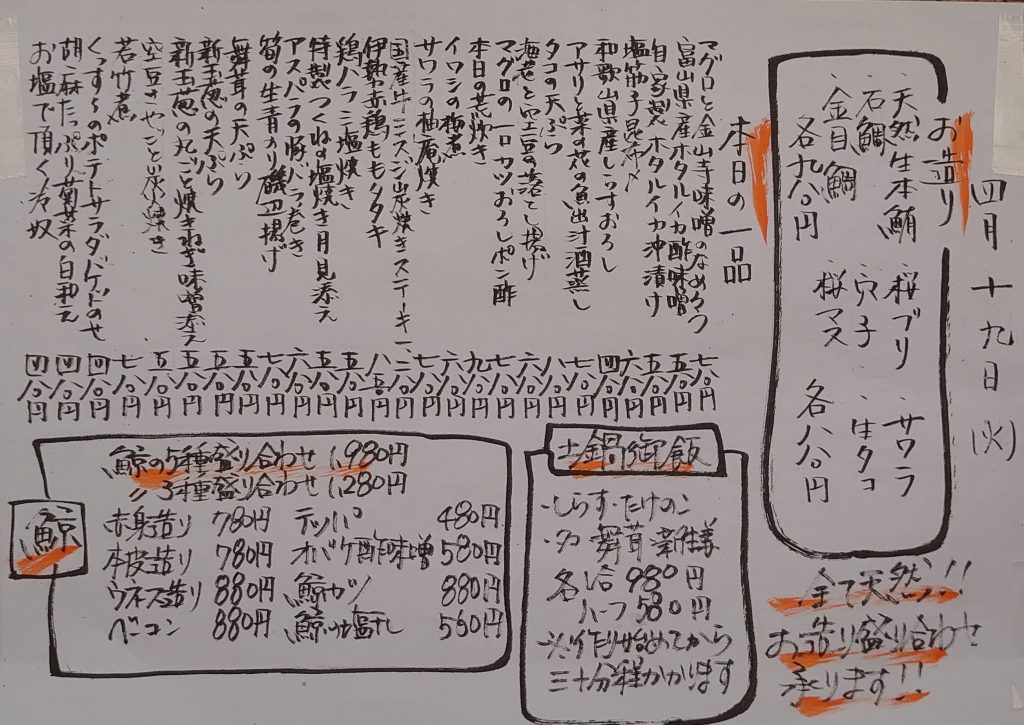 四月十九日(火)
お造り
・天然生本鮪 ・桜ブリ ・サワラ
・石鯛 ・穴子 ・生タコ
・金目鯛 ・桜マス
各九八〇円 各八八〇円
全て天然!!
お造り盛り合わせ
承ります!!
本日の一品
マグロと金山寺味噌のなめろう 七八〇円
富山県産ホタルイカ酢味噌 五八〇円
自家製ホタルイカ沖漬け 五八〇円
塩筋子昆布〆 六八〇円
和歌山県産しらすおろし 四八〇円
アサリと菜の花の魚出汁酒蒸し 七八〇円
タコの天ぷら 八八〇円
海老と空豆の落とし揚げ 六八〇円
マグロの一口カツおろしポン酢 七八〇円
本日の荒炊き 九八〇円
イワシの梅煮 六八〇円
サワラの柚庵焼き 七八〇円
国産牛ミスジ炭焼きステーキ 一二八〇円
伊勢赤鶏ももタタキ 八八〇円
鶏ハラミ塩焼き 五八〇円
特製つくねの塩焼き月見添え 五八〇円
アスパラの豚バラ巻き 六八〇円
筍の生青のり磯辺揚げ 七八〇円
舞茸の天ぷら 五八〇円
新玉葱の天ぷら 五八〇円
新玉葱の丸ごと焼きねぎ味噌添え 五八〇円
空豆さやごと炭焼き 五八〇円
若竹煮 七八〇円
くんすくのポテトサラダバゲットのせ 四八〇円
胡麻たっぷり菊菜の白和え 四八〇円
お塩で頂く冷奴 四八〇円
土鍋御飯
・しらす・たけのこ
・タコ 舞茸 新生姜
各一合 980円
ハーフ 580円
※作り始めてから
三十分程かかります
鯨
鯨の5種盛り合わせ 1,980円
〃 3種盛り合わせ 1,280円
赤身造り 780円 テッパ 480円
本皮造り 780円 オバケ酢味噌 580円
ウネス造り 880円 鯨カツ 880円
ベーコン 880円 鯨の塩干し 580円